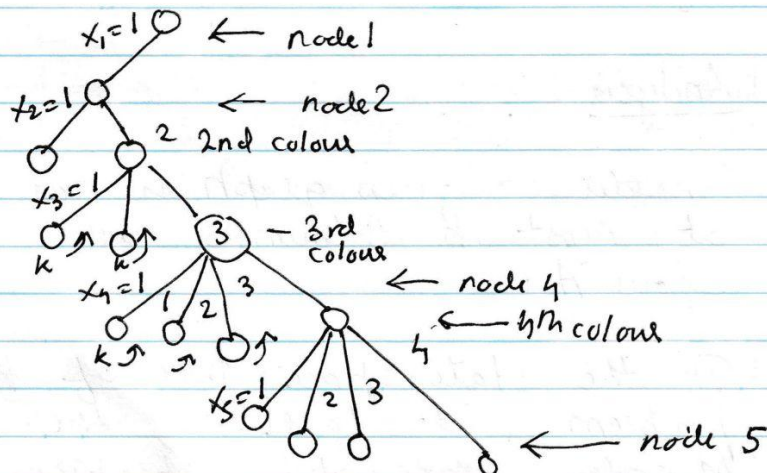 x₁=1 ← node1
x₂=1 ← node2
2 2nd colour
x₃=1
3 - 3rd
colour
k k
x₄=1 1 2 3 ← node 4
k 4 ← 4th colour
x₅=1 2 3
← node 5